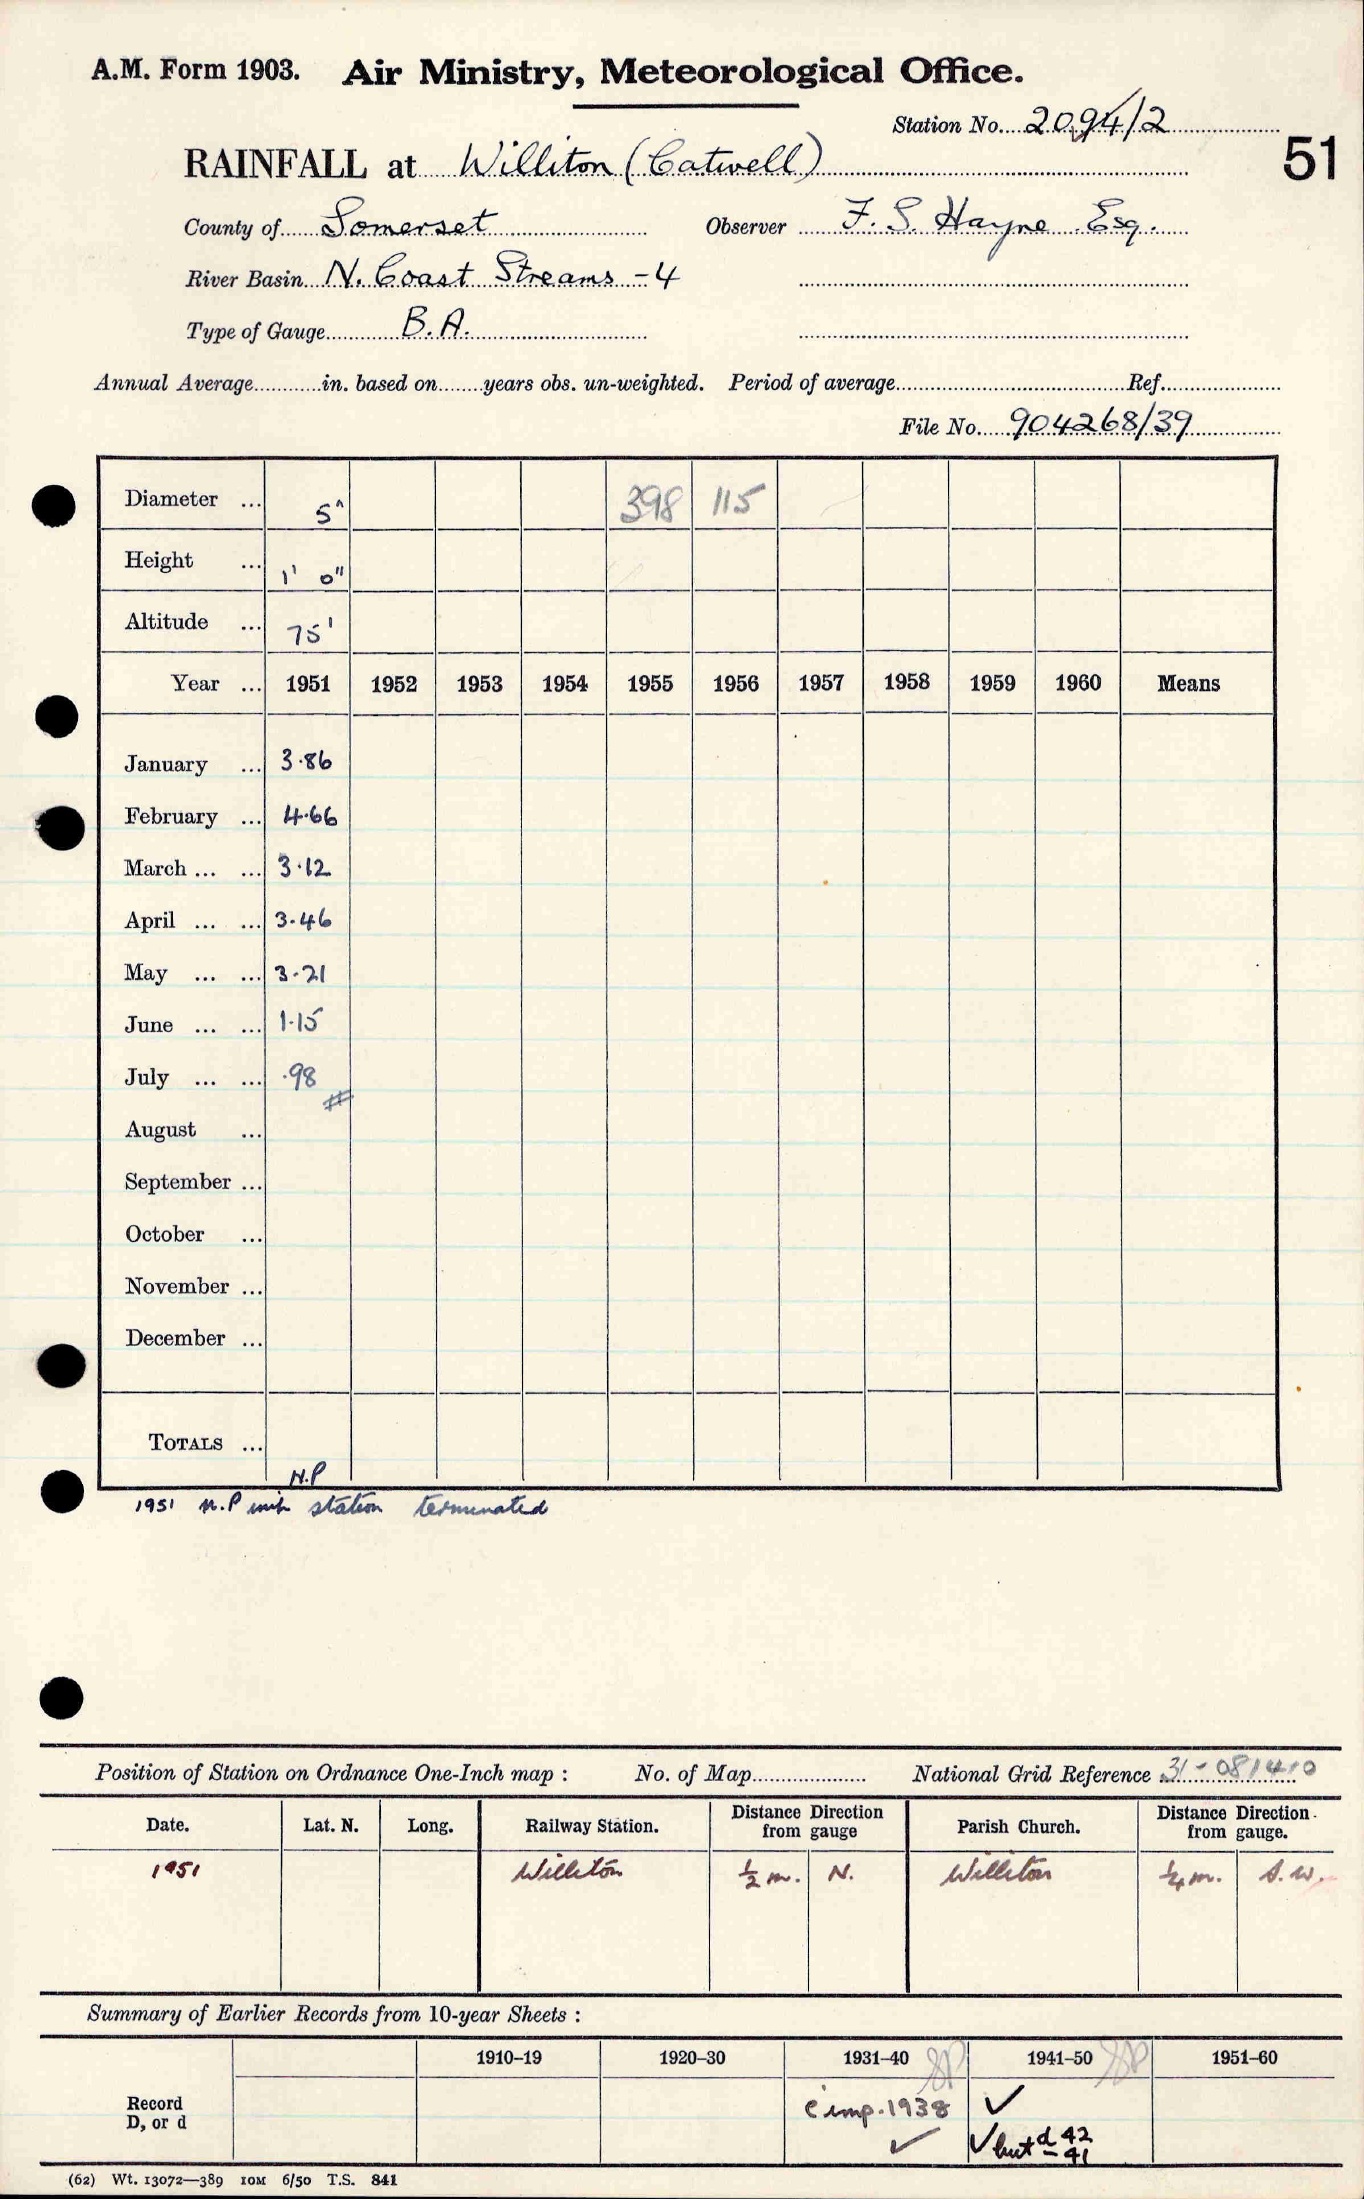 A.M. Form 1903. Air Ministry, Meteorological Office.
Station No. 2094/2
51
RAINFALL at Williton (Catwell)
County of Somerset Observer F. S. Hayne Esq.
River Basin N. Coast Streams -4
Type of Gauge B.A.
Annual Average in. based on years obs. un-weighted. Period of average Ref.
File No. 904268/39
Diameter ... 5" 398 115
Height ... 1' 0"
Altitude ... 75'
Year ... 1951 1952 1953 1954 1955 1956 1957 1958 1959 1960 Means
January ... 3.86
February ... 4.66
March ... ... 3.12
April ... ... 3.46
May ... ... 3.21
June ... ... 1.15
July ... ... .98
#
August ...
September ...
October ...
November ...
December ...
TOTALS ...
N.P
1951 N.P station terminated
Position of Station on Ordnance One-Inch map : No. of Map National Grid Reference 31-081410
Date. Lat. N. Long. Railway Station. Distance Direction from gauge Parish Church. Distance Direction from gauge.
1951 Williton ½ m. N. Williton ¼ m. S.W.
Summary of Earlier Records from 10-year Sheets :
1910–19 1920–30 1931–40 1941–50 1951–60
Record D, or d imp. 1938 ✓ ✓
✓ but d 42
– 41
(62) Wt. 13072—389 10M 6/50 T.S. 841